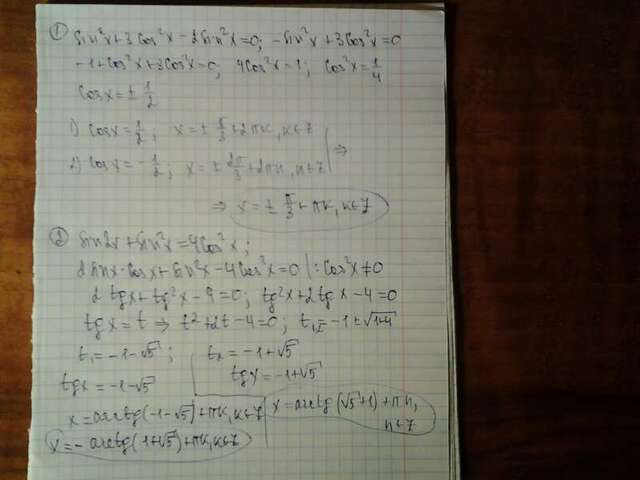 ① sin²x+3cos²x-2sin²x=0; -sin²x+3cos²x=0
-1+cos²x+3cos²x=0; 4cos²x=1; cos²x=1/4
cosx=±1/2
1) cosx=1/2; x=±π/3+2πk, k∈Z
2) cosx=-1/2; x=±2π/3+2πn, n∈Z ⇒
⇒ x=±π/3+πk, k∈Z
② sin2x+sin²x=4cos²x;
2sinx·cosx+sin²x-4cos²x=0 |:cos²x≠0
2tgx+tg²x-4=0; tg²x+2tgx-4=0
tgx=t ⇒ t²+2t-4=0; t₁,₂=-1±√1+4
t₁=-1-√5; t₂=-1+√5
tgx=-1-√5 tgx=-1+√5
x=arctg(-1-√5)+πk, k∈Z x=arctg(√5+1)+πn, n∈Z
x=-arctg(1+√5)+πk, k∈Z